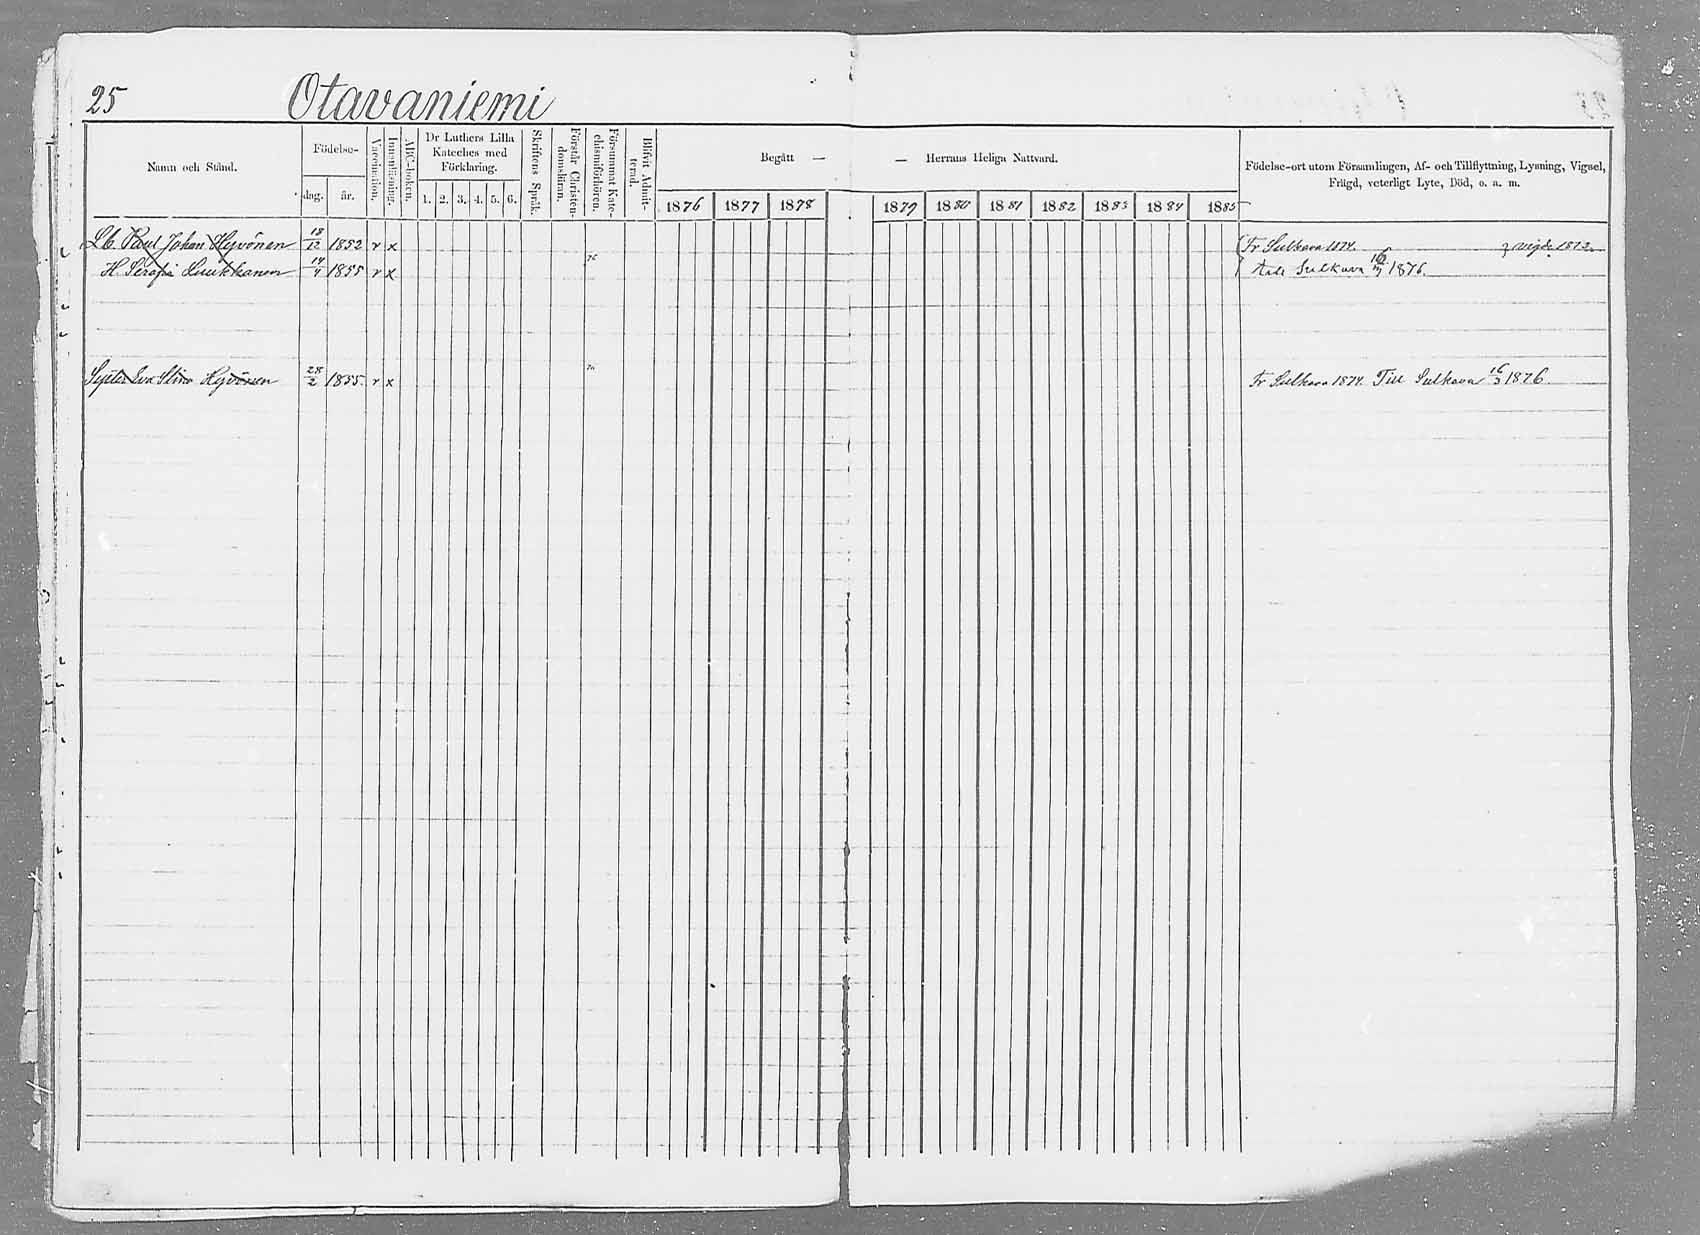 25 Otavaniemi
Namn och Stånd.
Födelse-
dag. år.
Vaccination.
Innanläsning.
ABC-boken.
Dr Luthers Lilla
Kateches med
Förklaring.
1. 2. 3. 4. 5. 6.
Skriftens Språk.
Förstår Christen-
domsläran.
Försummat Kate-
chismiförhören.
Blifvit Admit-
terad.
Begått —
— Herrans Heliga Nattvard.
1876 1877 1878 1879 1880 1881 1882 1883 1884 1885
Födelse-ort utom Församlingen, Af- och Tillflyttning, Lysning, Vigsel,
Frägd, veterligt Lyte, Död, o. a. m.
Lb. Paul Johan Hyvönen 18/12 1852 v x Fr Sulkava 1874. vigde 1873
H. Serafia Luukkanen 14/4 1855 v x 76 Till Sulkava 1876.
Syster Eva Stina Hyvönen 28/2 1855. v x 76 Fr Sulkava 1874. Till Sulkava 16/3 1876.